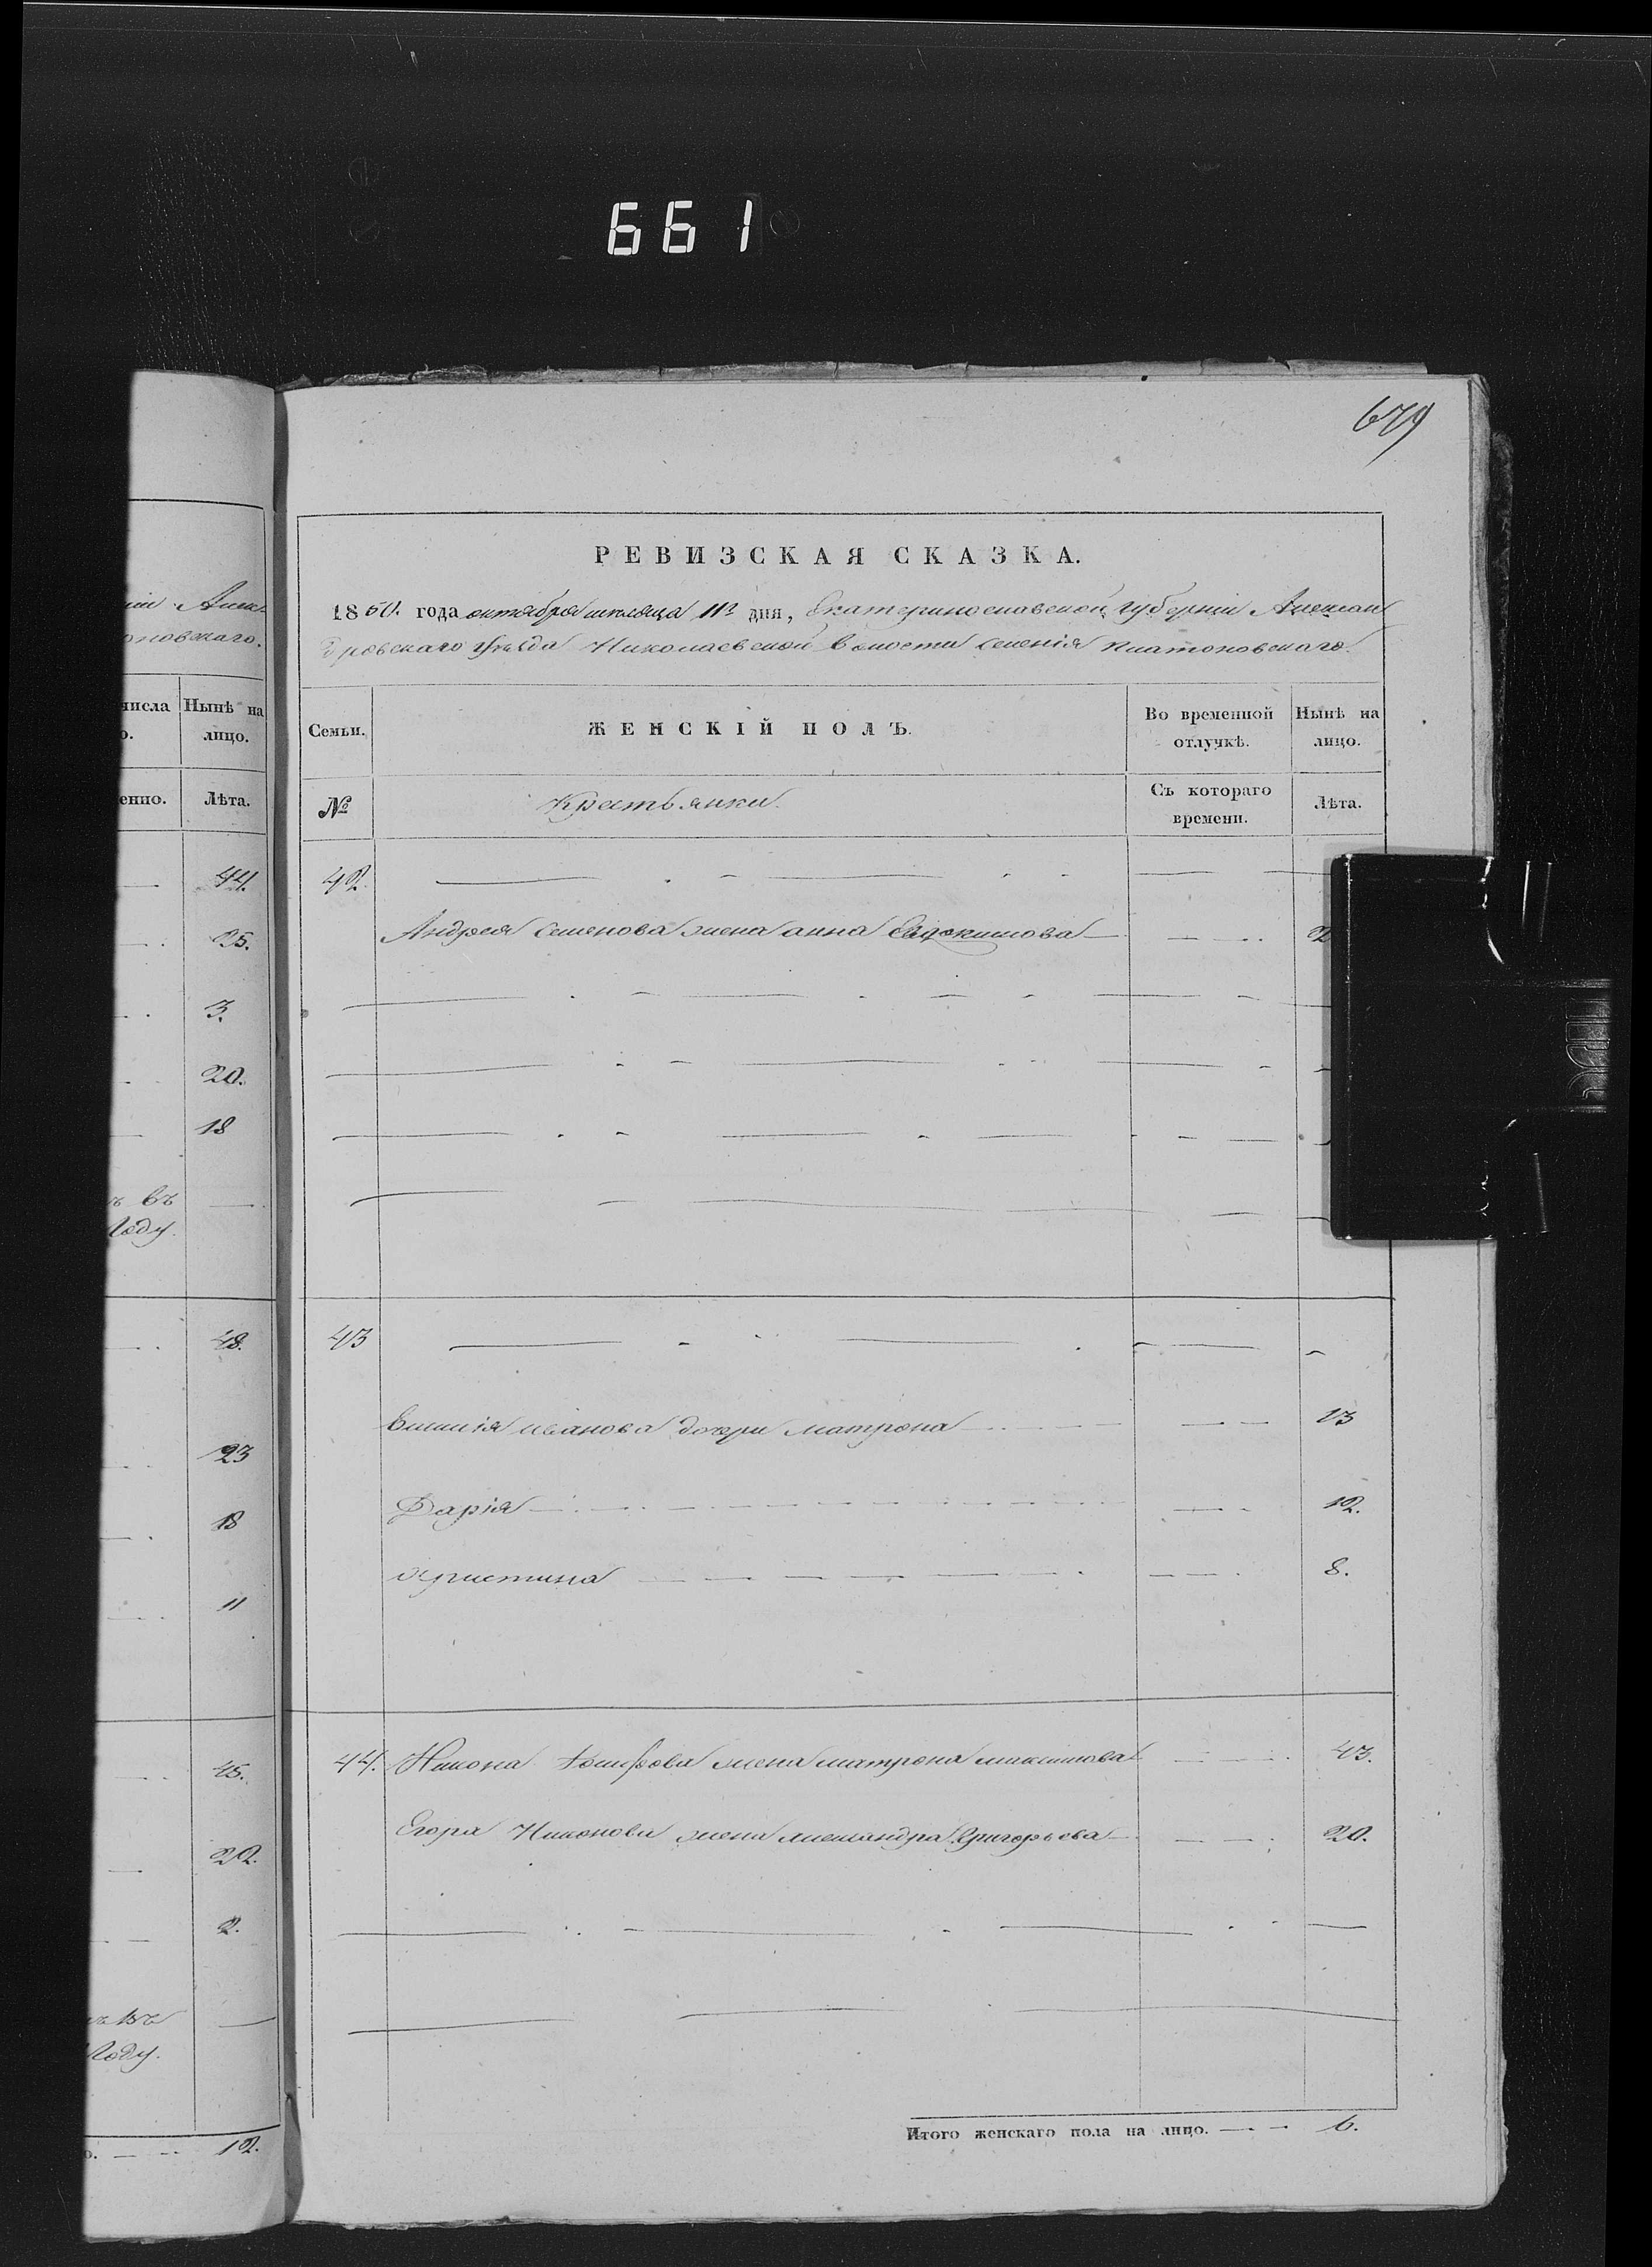 661
679
РЕВИЗСКАЯ СКАЗКА.
1850. года октября месяца 11го дня, Екатеринославской губернiи Алексан
дровскаго уѣзда Николаевской волости селенiя Платоновскаго.
Семьи.
ЖЕНСКIЙ ПОЛЪ.
Во временной отлучкѣ.
Ныньѣ на лицо.
№
Крестьянки.
Съ котораго времени.
Лѣта.
42.
Андрея Семенова жена анна Евдокимова
43
Ивanова дочери матрона 13
Дарiя 12.
христина 8.
44. Никона жена матрона максимова 43.
Егора Никонова жена александра Григорьева 20.
Итого женскаго пола на лицо. 6.
Алек
оновскаго.
числа
Нынѣ на лицо.
енно.
Лѣта.
44.
25.
3.
20.
18
въ
Году.
48.
23
18
11
45.
22.
2.
Году.
12.